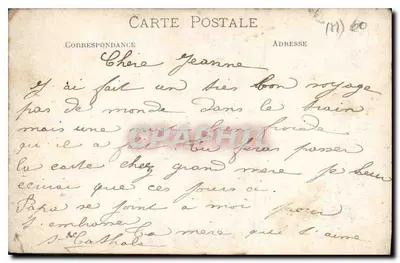 CARTE POSTALE
(11) 60
CORRESPONDANCE
ADRESSE
Chère Jeanne
J'ai fait un très bon voyage
pas de monde dans le train
mais une froide
qu'il a Tu feras passer
la carte chez grand mère je
que ces jours ci.
Papa se joint à moi pour
t'embrasser
Ta mère qui t'aime